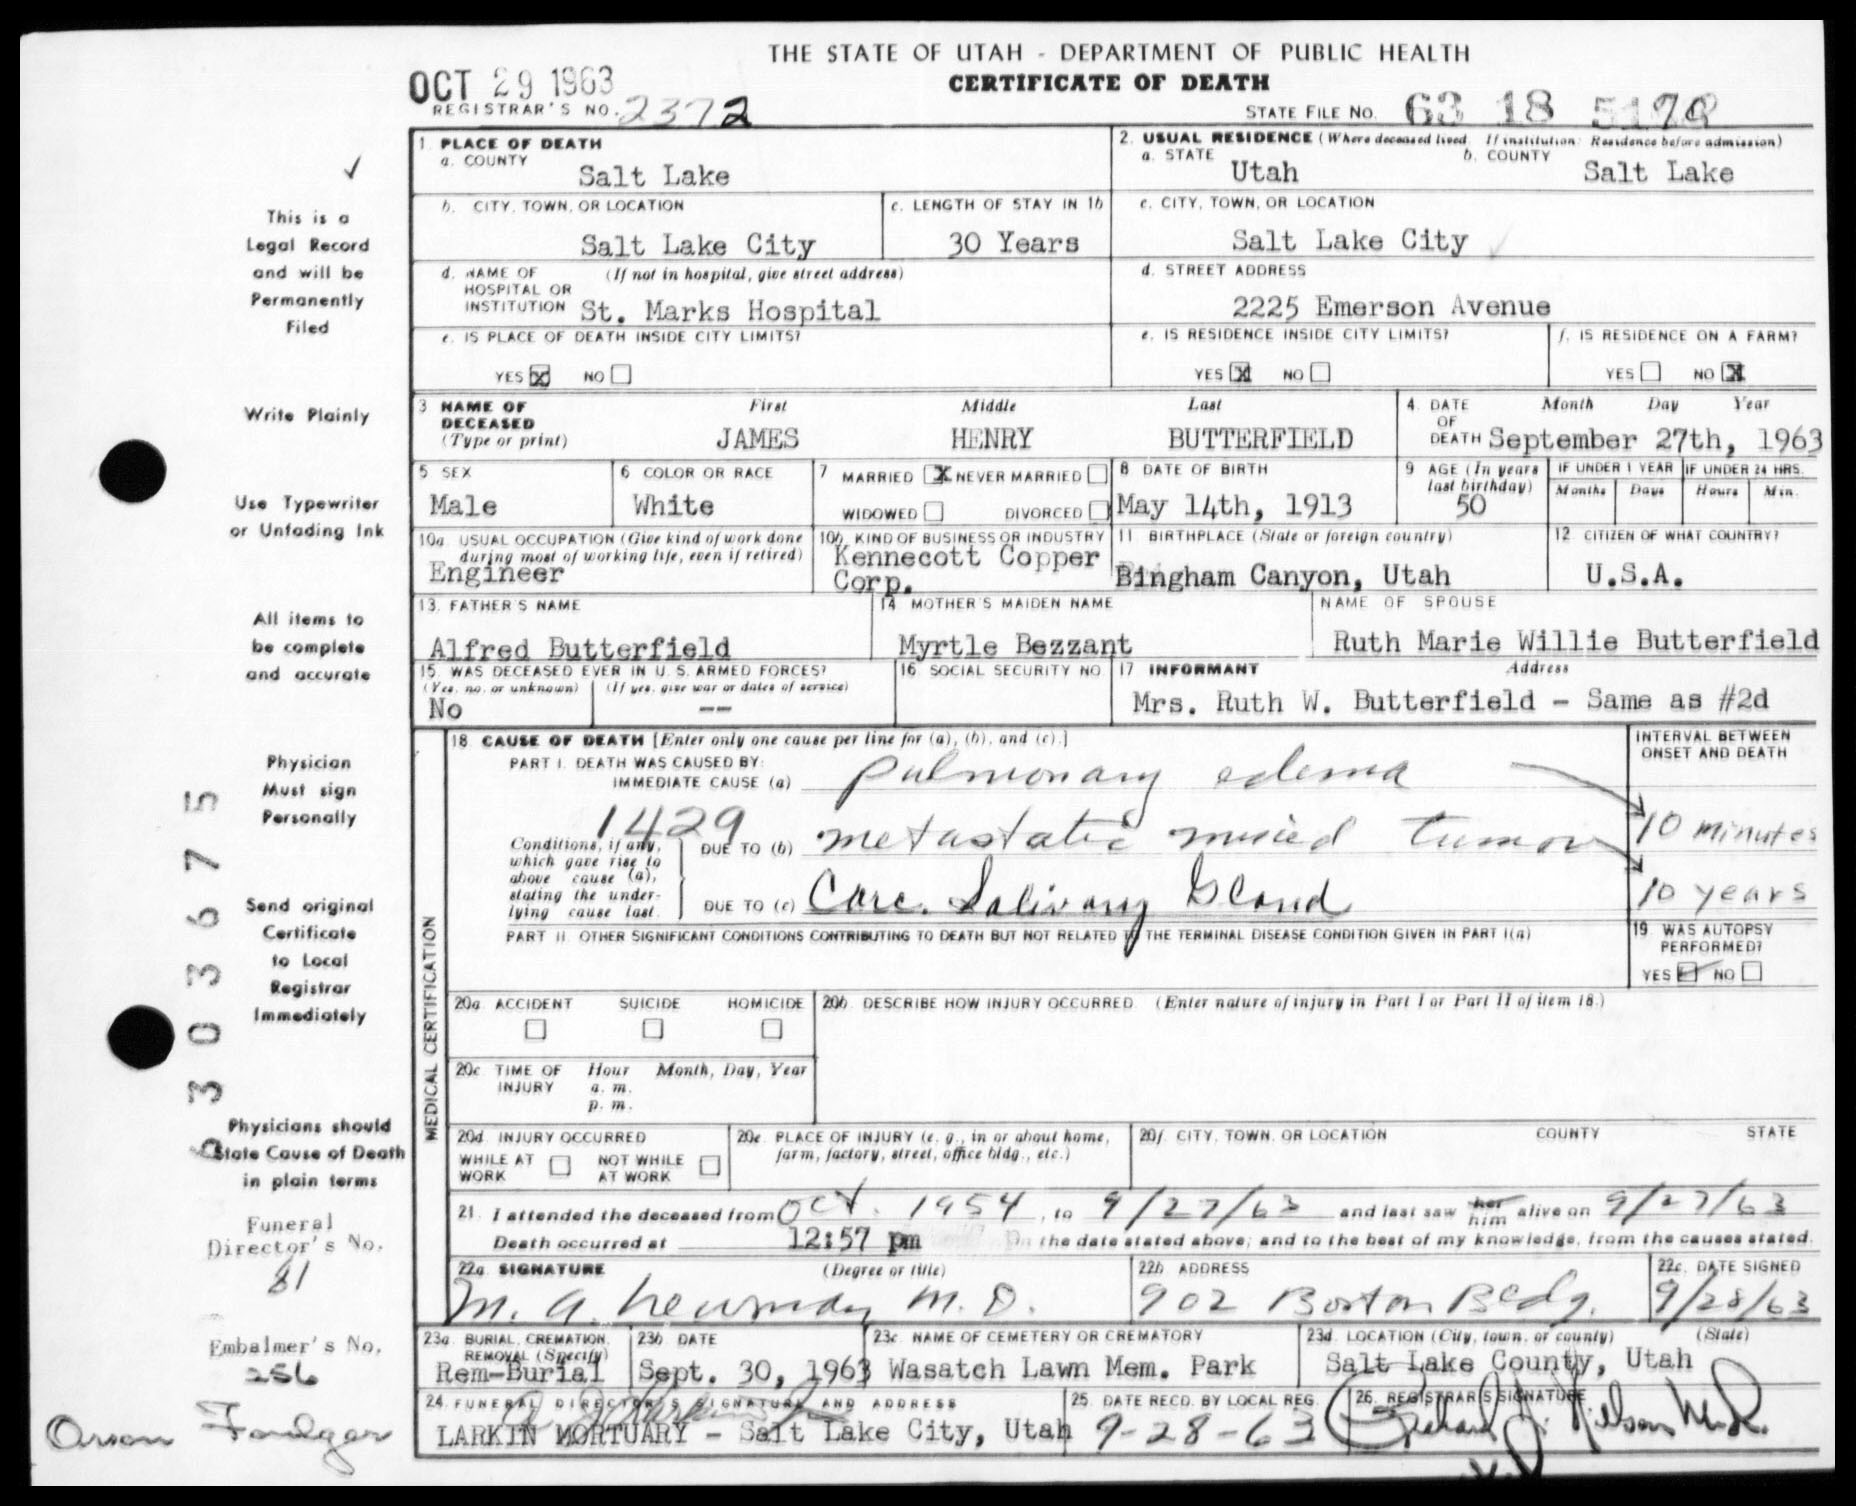 THE STATE OF UTAH - DEPARTMENT OF PUBLIC HEALTH
OCT 29 1963
CERTIFICATE OF DEATH
REGISTRAR'S NO. 2372
STATE FILE NO. 63 18
1. PLACE OF DEATH
a. COUNTY
Salt Lake
2. USUAL RESIDENCE (Where deceased lived. If institution: Residence before admission)
a. STATE
Utah
b. COUNTY
Salt Lake
b. CITY, TOWN, OR LOCATION
Salt Lake City
c. LENGTH OF STAY IN 1b
30 Years
c. CITY, TOWN, OR LOCATION
Salt Lake City
d. NAME OF HOSPITAL OR INSTITUTION
(If not in hospital, give street address)
St. Marks Hospital
d. STREET ADDRESS
2225 Emerson Avenue
e. IS PLACE OF DEATH INSIDE CITY LIMITS?
YES X NO
e. IS RESIDENCE INSIDE CITY LIMITS?
YES X NO
f. IS RESIDENCE ON A FARM?
YES NO X
3 NAME OF DECEASED
(Type or print)
First Middle Last
JAMES HENRY BUTTERFIELD
4. DATE OF DEATH
Month Day Year
September 27th, 1963
5 SEX
Male
6 COLOR OR RACE
White
7 MARRIED X NEVER MARRIED
WIDOWED DIVORCED
8 DATE OF BIRTH
May 14th, 1913
9 AGE (In years last birthday)
50
IF UNDER 1 YEAR
Months Days
IF UNDER 24 HRS.
Hours Min.
10a USUAL OCCUPATION (Give kind of work done during most of working life, even if retired)
Engineer
10b. KIND OF BUSINESS OR INDUSTRY
Kennecott Copper
Corp.
11 BIRTHPLACE (State or foreign country)
Bingham Canyon, Utah
12 CITIZEN OF WHAT COUNTRY?
U.S.A.
13. FATHER'S NAME
Alfred Butterfield
14 MOTHER'S MAIDEN NAME
Myrtle Bezzant
NAME OF SPOUSE
Ruth Marie Willie Butterfield
15. WAS DECEASED EVER IN U.S. ARMED FORCES?
(Yes, no, or unknown) (If yes, give war or dates of service)
No --
16. SOCIAL SECURITY NO.
17 INFORMANT Address
Mrs. Ruth W. Butterfield - Same as #2d
MEDICAL CERTIFICATION
18 CAUSE OF DEATH [Enter only one cause per line for (a), (b), and (c).]
INTERVAL BETWEEN ONSET AND DEATH
PART I. DEATH WAS CAUSED BY:
IMMEDIATE CAUSE (a) pulmonary edema
10 minutes
1429
Conditions, if any, which gave rise to above cause (a), stating the underlying cause last.
DUE TO (b) metastatic mixed tumor
10 years
DUE TO (c) Carc. Salivary Gland
PART II. OTHER SIGNIFICANT CONDITIONS CONTRIBUTING TO DEATH BUT NOT RELATED TO THE TERMINAL DISEASE CONDITION GIVEN IN PART I(a)
19 WAS AUTOPSY PERFORMED?
YES ✓ NO
20a ACCIDENT SUICIDE HOMICIDE
20b. DESCRIBE HOW INJURY OCCURRED. (Enter nature of injury in Part I or Part II of item 18.)
20c TIME OF INJURY
Hour Month, Day, Year
a. m.
p. m.
20d INJURY OCCURRED
WHILE AT WORK NOT WHILE AT WORK
20e. PLACE OF INJURY (e. g., in or about home, farm, factory, street, office bldg., etc.)
20f. CITY, TOWN, OR LOCATION COUNTY STATE
21. I attended the deceased from Oct. 1954, to 9/27/63 and last saw her him alive on 9/27/63
Death occurred at 12:57 pm on the date stated above; and to the best of my knowledge, from the causes stated.
22a. SIGNATURE (Degree or title)
M. A. Newman M. D.
22b ADDRESS
902 Boston Bldg.
22c. DATE SIGNED
9/28/63
23a. BURIAL, CREMATION, REMOVAL (Specify)
Rem-Burial
23b DATE
Sept. 30, 1963
23c NAME OF CEMETERY OR CREMATORY
Wasatch Lawn Mem. Park
23d. LOCATION (City, town, or county) (State)
Salt Lake County, Utah
24. FUNERAL DIRECTOR'S SIGNATURE AND ADDRESS
LARKIN MORTUARY - Salt Lake City, Utah
25. DATE RECD. BY LOCAL REG.
9-28-63
26. REGISTRAR'S SIGNATURE
✓
This is a
Legal Record
and will be
Permanently
Filed
Write Plainly
Use Typewriter
or Unfading Ink
All items to
be complete
and accurate
Physician
Must sign
Personally
Send original
Certificate
to Local
Registrar
Immediately
Physicians should
State Cause of Death
in plain terms
Funeral
Director's No.
81
Embalmer's No.
256
Orson Foulger
0303675